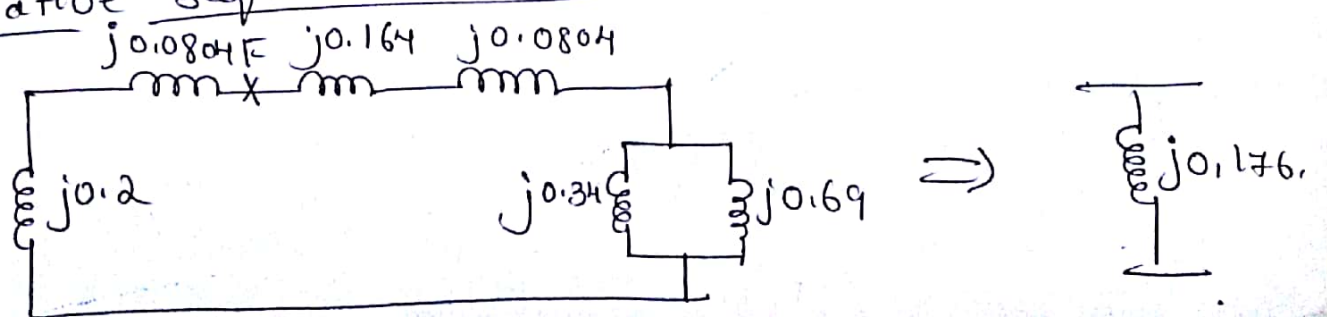 j0.0804 F j0.164 j0.0804
j0.2 j0.34 j0.69 ⇒ j0.176.